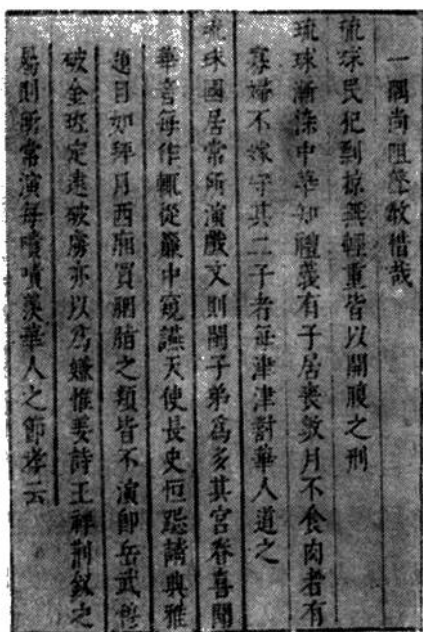 一隅尚阻聲教惜哉
琉球民犯剽掠無輕重皆以開腹之刑
琉球漸染中華知禮義有子居喪數月不食肉者有
寡婦不嫁守其二子者每津津對華人道之
琉球國居常所演戲文則閩子弟為多其宮眷喜聞
華音每作輒從簾中窺讌天使長史恒跽請典雅
題目如拜月西廂買胭脂之類皆不演即岳武穆
破金班定遠破虜亦以為嫌惟姜詩王祥荊釵之
屬則所常演每嘖嘖羨華人之節孝云